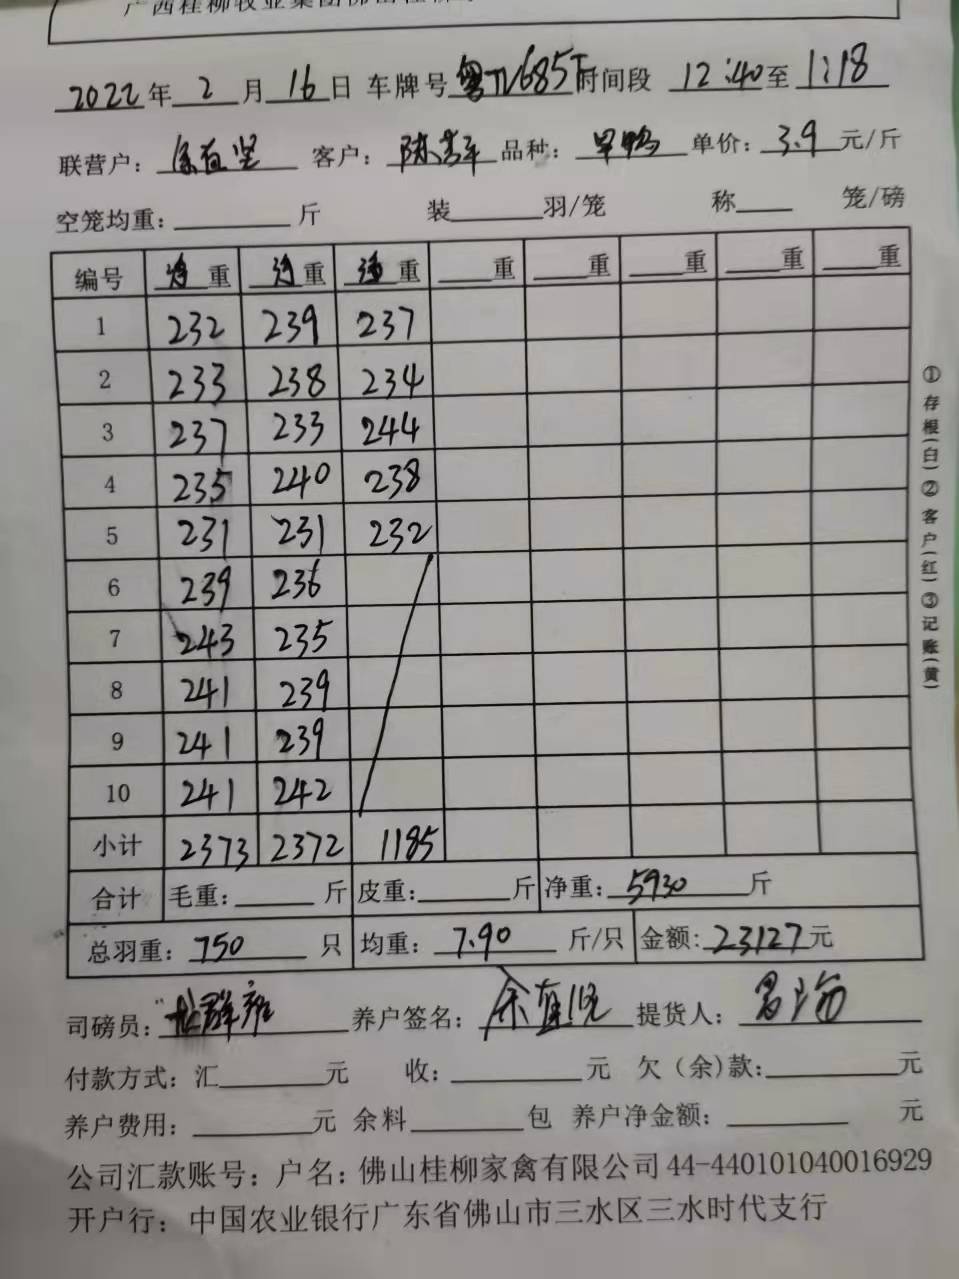 广西桂柳牧业集团佛山桂柳
2022年2月16日 车牌号 时间段 12:40至1:18
联营户: 客户: 品种:旱鸭 单价:3.9元/斤
空笼均重: 斤 装 羽/笼 称 笼/磅
编号 重 重 重 重 重 重 重 重
1 232 239 237
2 233 238 234
3 237 233 244
4 235 240 238
5 231 231 232
6 239 236
7 243 235
8 241 239
9 241 239
10 241 242
小计 2373 2372 1185
合计 毛重: 斤 皮重: 斤 净重:5930斤
总羽重:750只 均重:7.90斤/只 金额:23127元
司磅员: 养户签名: 提货人:
付款方式:汇 元 收: 元 欠(余)款: 元
养户费用: 元 余料 包 养户净金额: 元
公司汇款账号:户名:佛山桂柳家禽有限公司44-440101040016929
开户行:中国农业银行广东省佛山市三水区三水时代支行
①存根(白)②客户(红)③记账(黄)